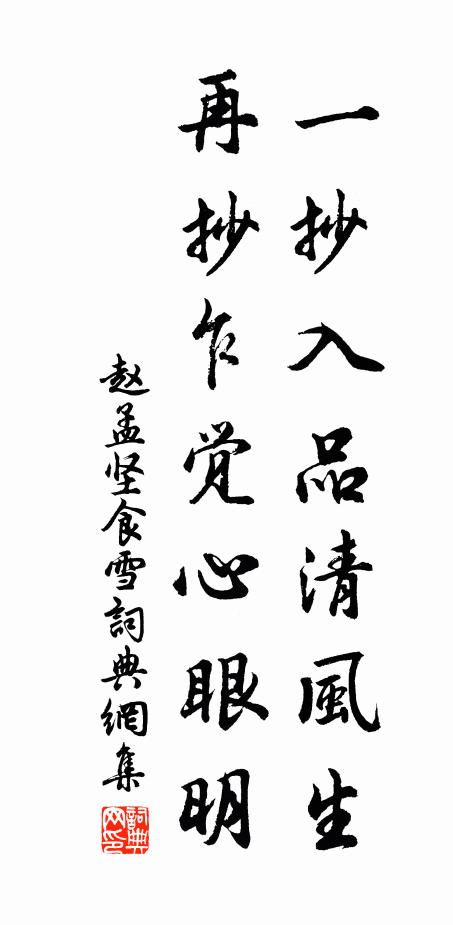 一抄入品清風生
再抄乍觉心眼明
赵孟坚食雪詞典網集
詞典网印